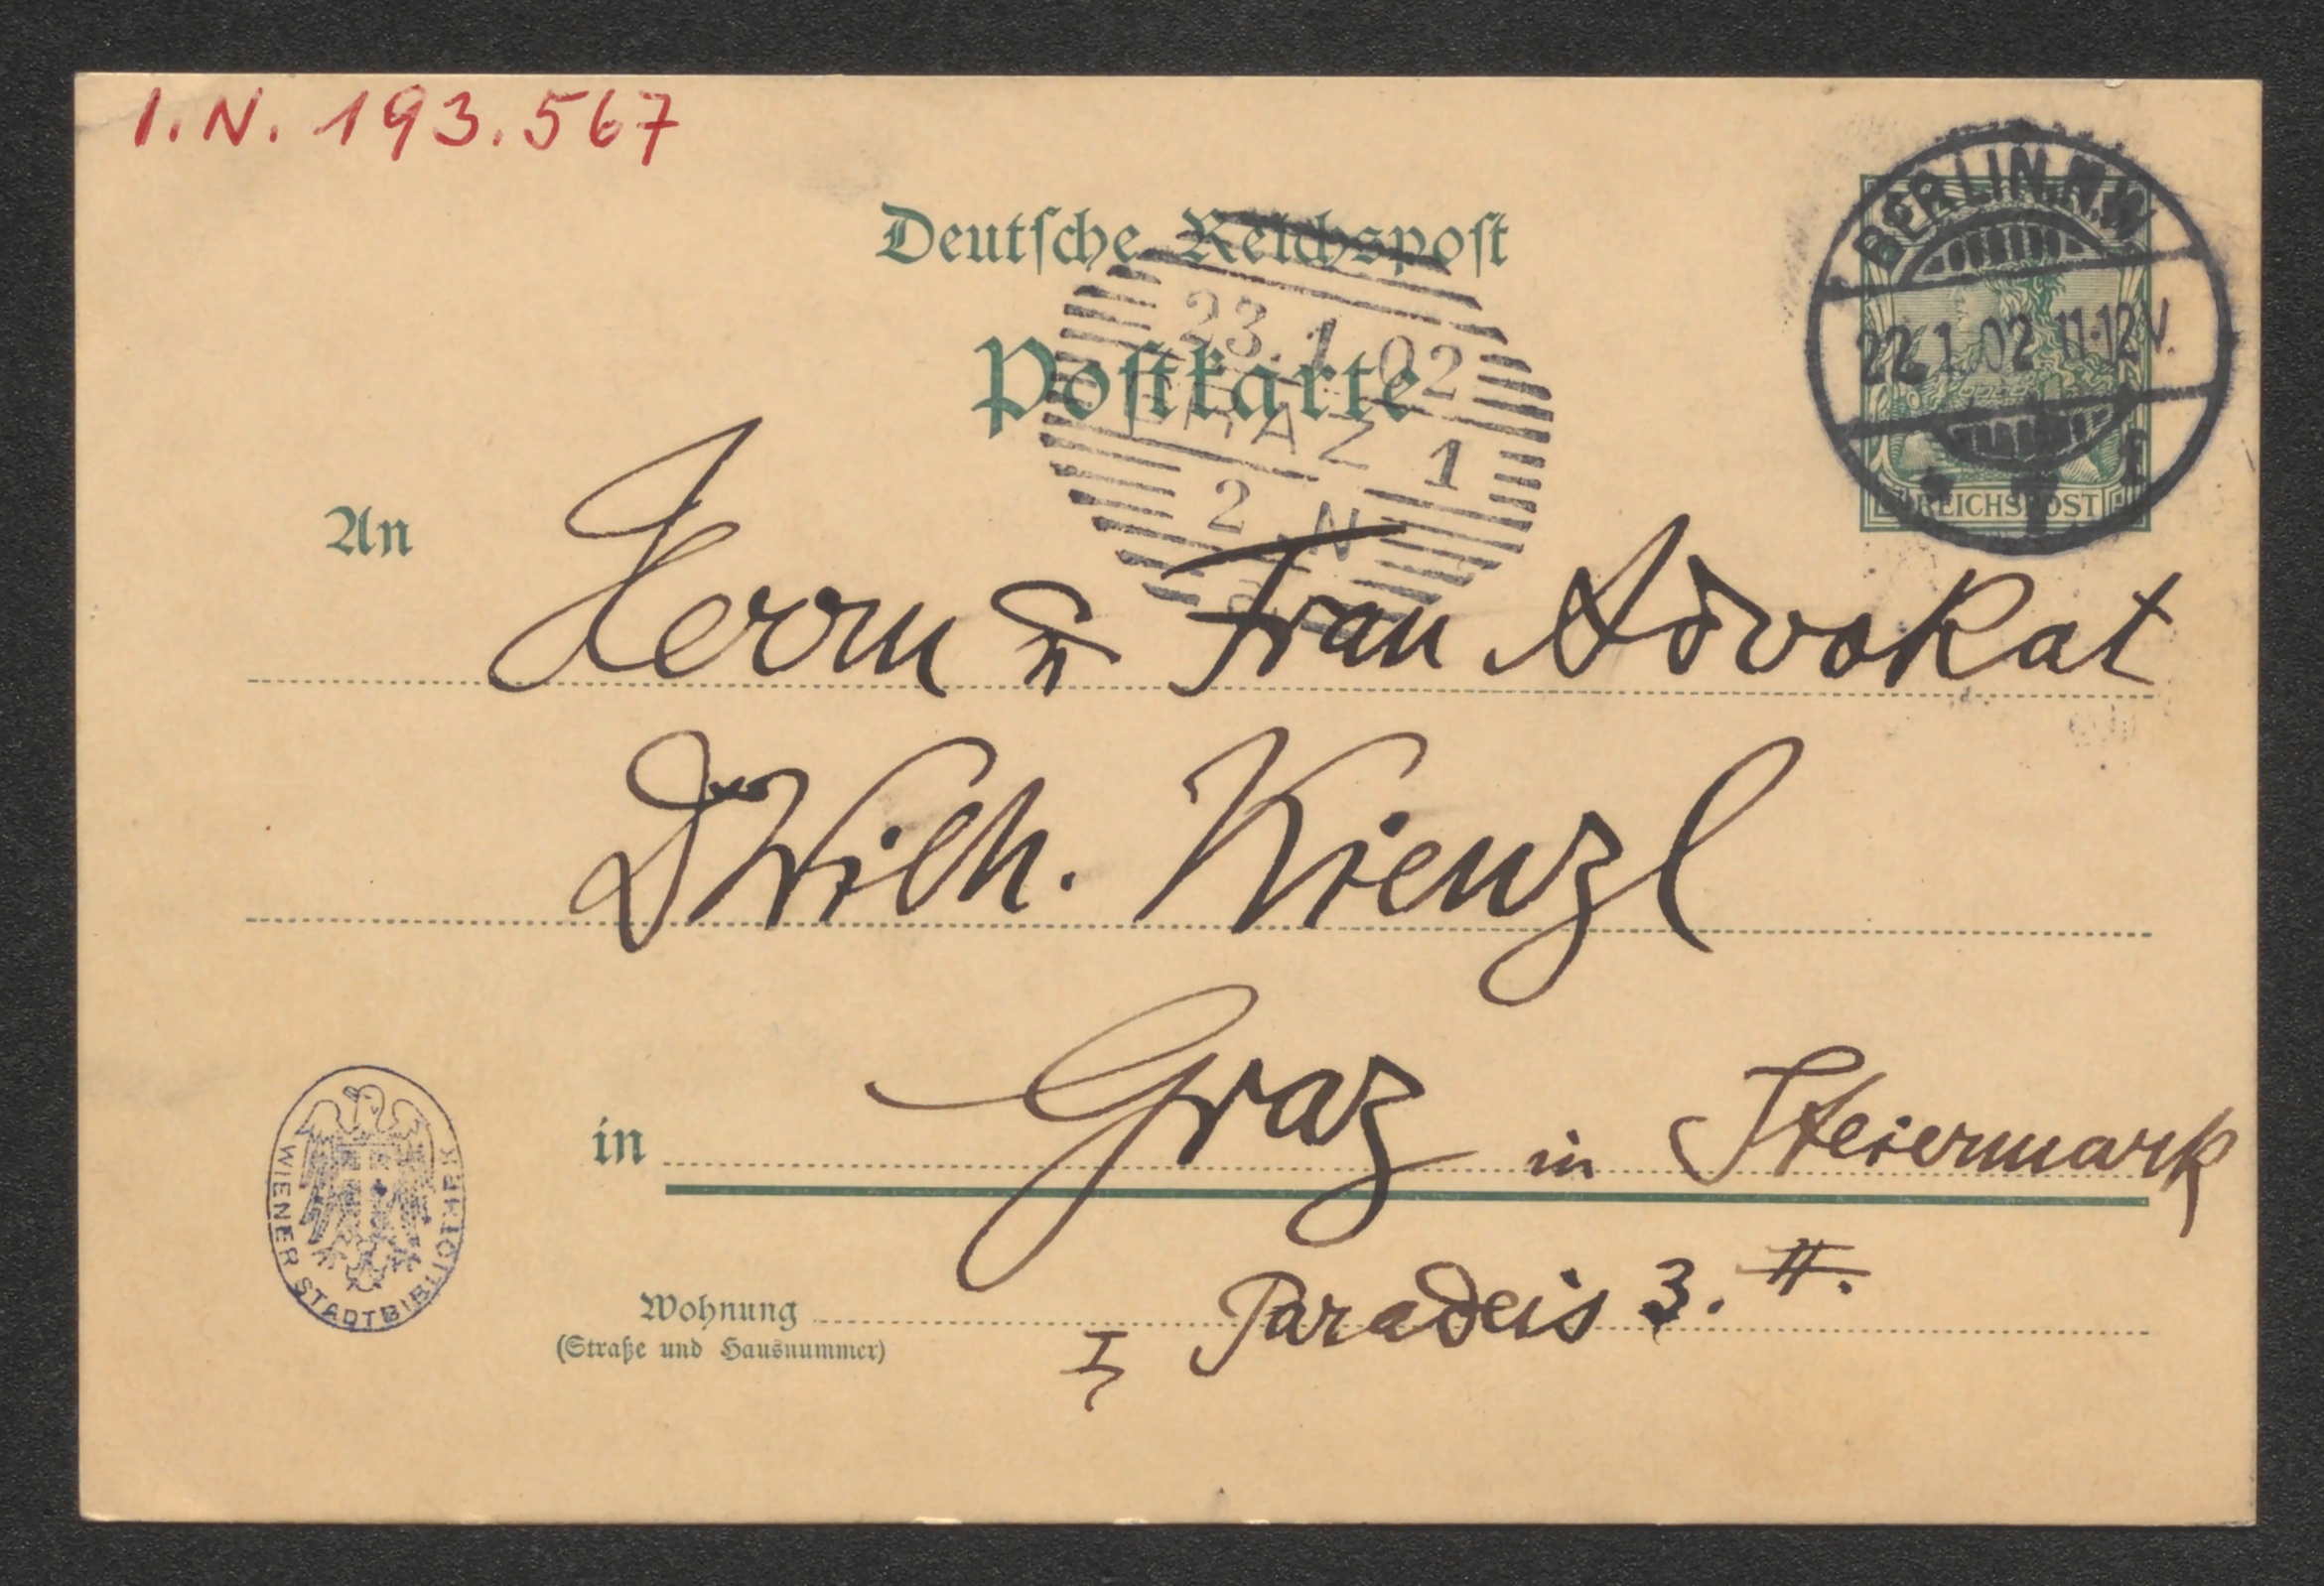 I.N. 193.567
Deutsche Reichspost
Postkarte
BERLIN.N.W.
22.1.02 11-12V.
REICHSPOST
23.1.02
GRAZ 1
2 N
An Herrn u Frau Advokat
Dr Wilh. Kienzl
in Graz in Steiermark
Wohnung Paradeis 3. II.
(Straße und Hausnummer) I
WIENER STADTBIBLIOTHEK